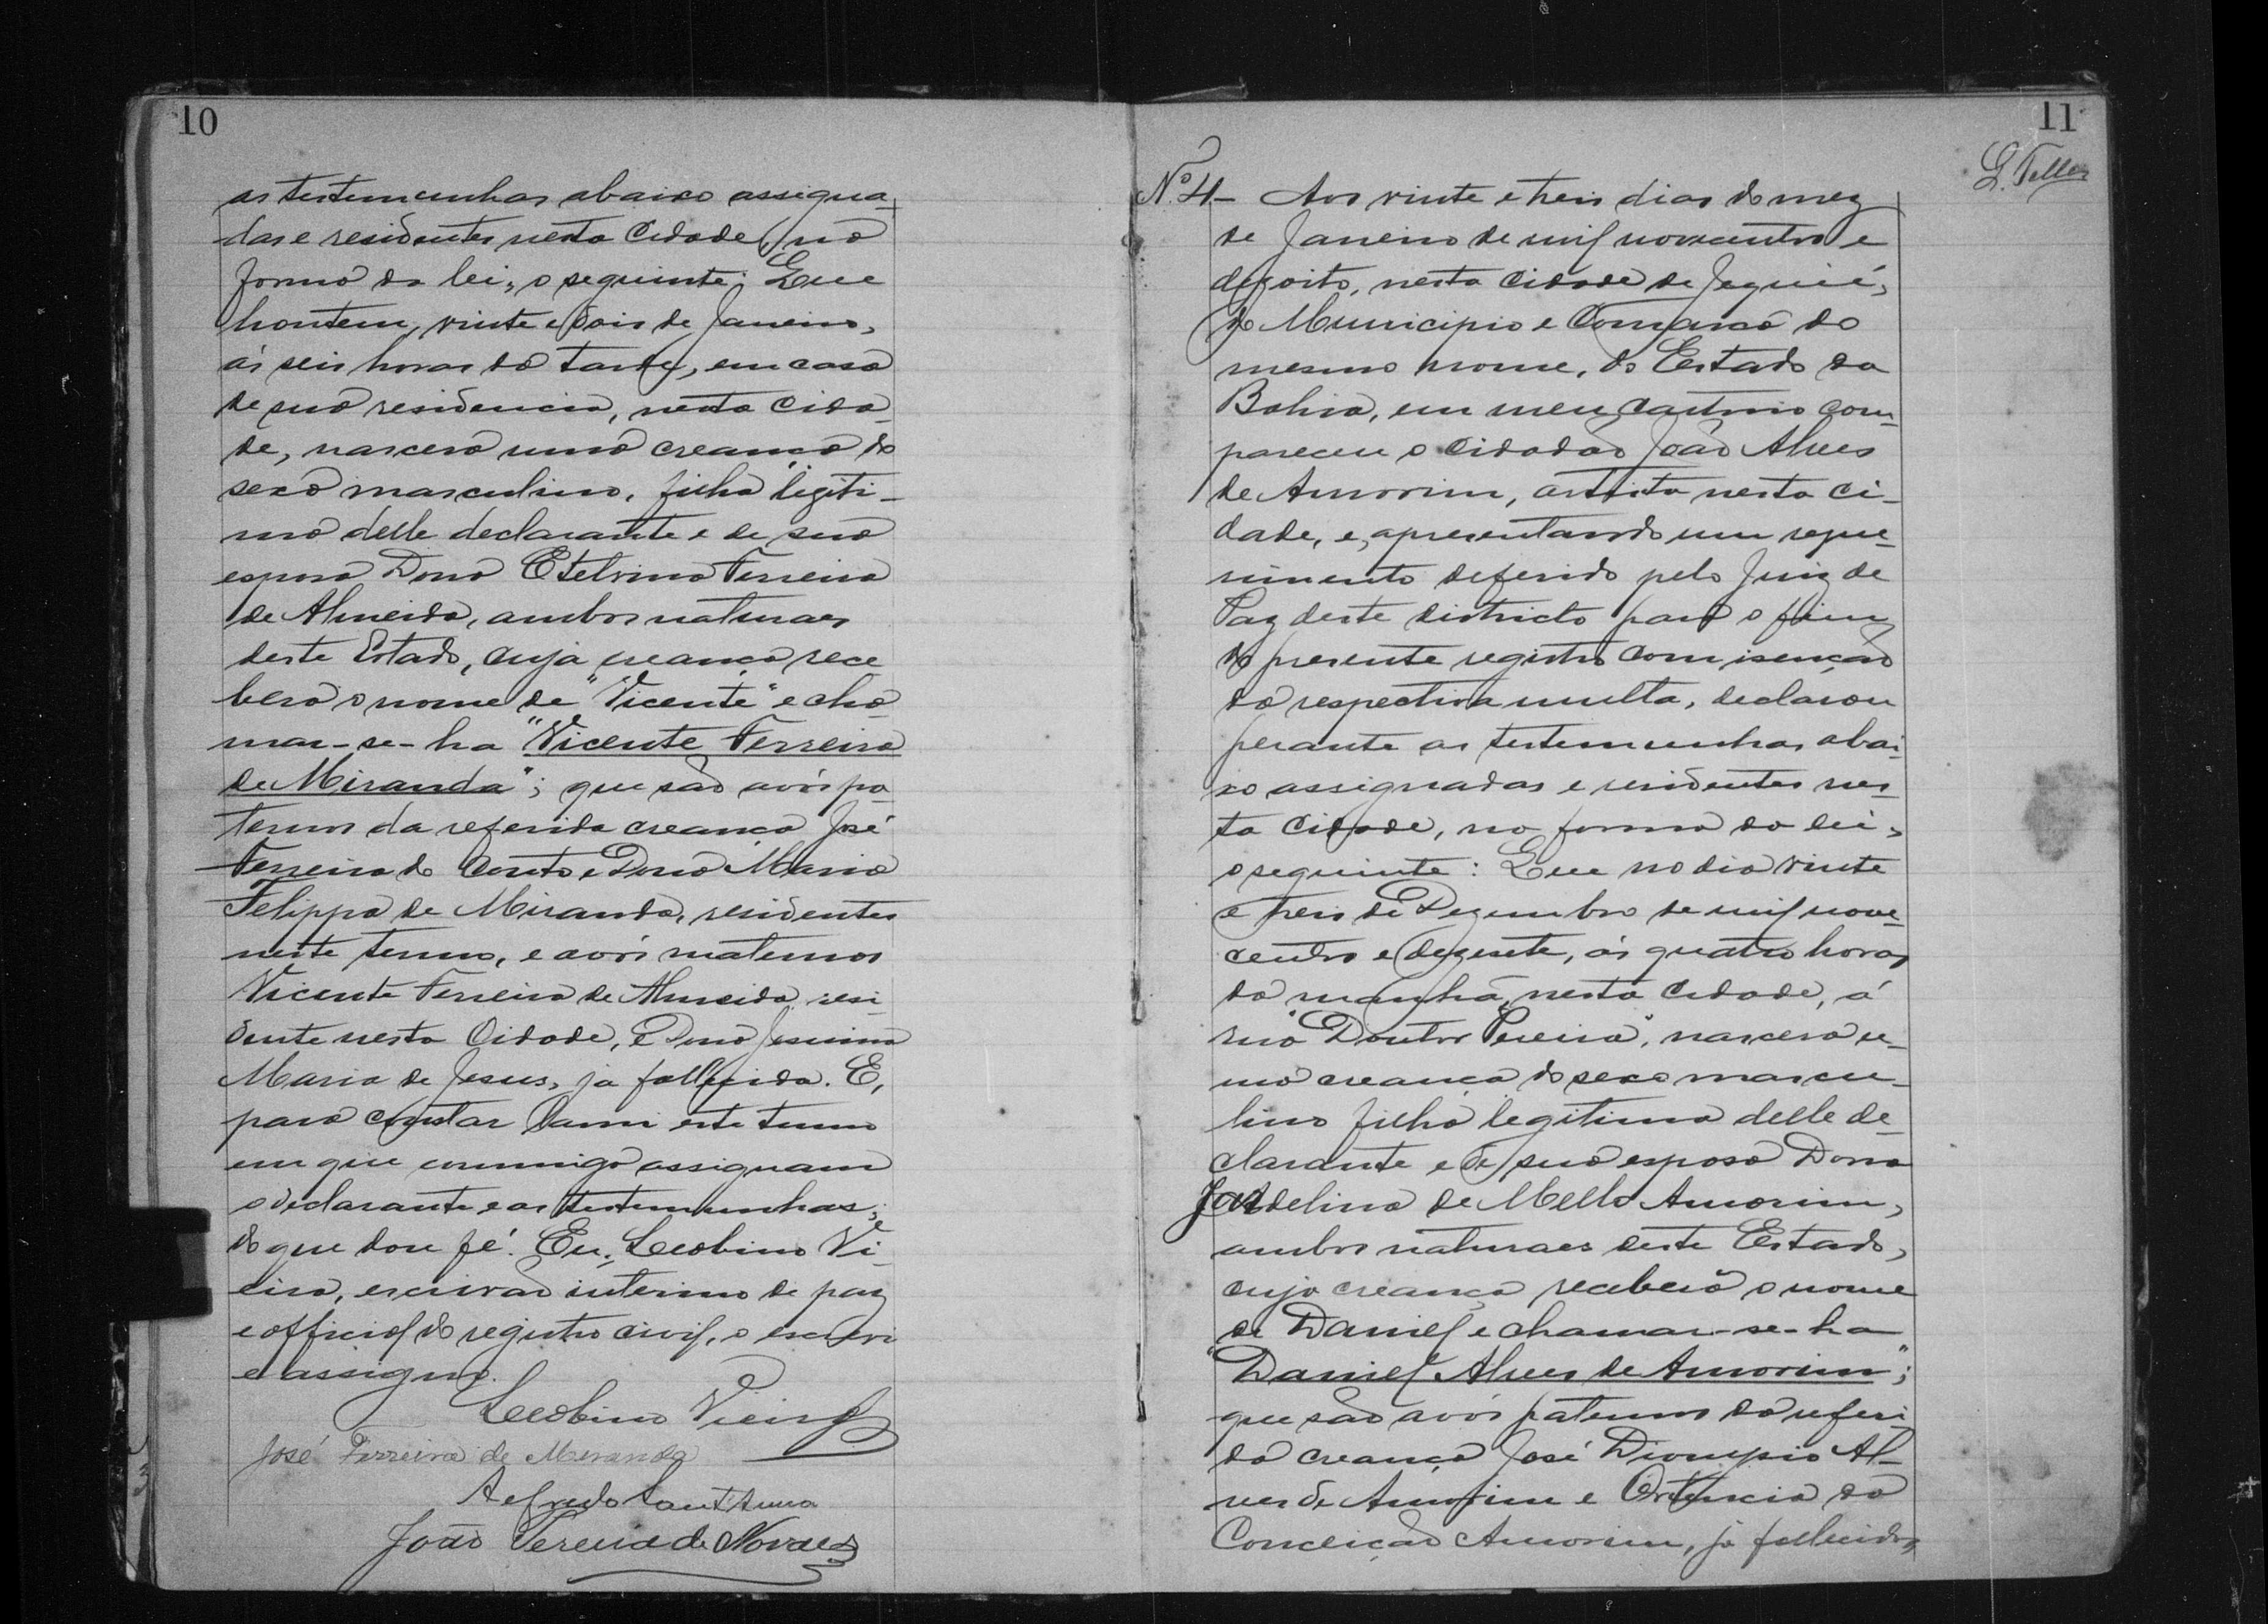 10
as testemunhas abaixo assigna-
das e residentes nesta Cidade, na
forma da lei, o seguinte: Que
hontem, vinte e dois de Janeiro,
ás seis horas da tarde, em casa
de sua residencia, nesta cida-
de, nascera uma creança do
sexo masculino, filha legiti-
ma delle declarante e de sua
esposa Dona Etelvina Ferreira
de Almeida, ambos naturaes
deste Estado, cuja creança rece
berá o nome de "Vicente" e cha-
mar-se-ha "Vicente Ferreira
de Miranda"; que são avós pa-
ternos da referida creança José
Ferreira do Couto e Dona Maria
Felippa de Miranda, residentes
neste termo, e avós maternos
Vicente Ferreira de Almeida, resi-
dente nesta Cidade, e Dona Jesuina
Maria de Jesus, já fallecida. E,
para constar lavrei este termo
em que commigo assignam
o declarante e as testemunhas;
do que dou fé. Eu, Leobino Vi-
eira, escrivão interino de paz
e official do registro civil, o escrevi
e assigno.
Leobino Vieira
José Ferreira de Miranda
Alfredo Sant'Anna
João Pereira de Novaes
11
G. Telles
Nº 4- Aos vinte e treis dias do mez
de Janeiro de mil novecentos e
dezoito, nesta cidade de Jequié,
do Municipio e Comarca do
mesmo nome, do Estado da
Bahia, em meu cartorio com-
pareceu o cidadão João Alves
de Amorim, artista nesta ci-
dade, e, apresentando um reque-
rimento deferido pelo Juiz de
Paz deste districto para o fim
do presente registro com isenção
da respectiva multa, declarou
perante as testemunhas abai-
xo assignadas e residentes nes-
ta cidade, na forma da lei,
o seguinte: Que no dia vinte
e treis de Dezembro de mil nove-
centos e dezesete, ás quatro horas
da manhã, nesta cidade, á
rua "Doutor Pereira", nascera u-
ma creança do sexo mascu-
lino filha legitima delle de-
clarante e de sua esposa Dona
delina de Mello Amorim,
ambos naturaes deste Estado,
cuja creança receberá o nome
de Daniel e chamar-se-ha
"Daniel Alves de Amorim";
que são avós paternos da referi-
da creança José Dionysio Al-
ves de Amorim e Ortencia da
Conceição Amorim, já fallecidos,